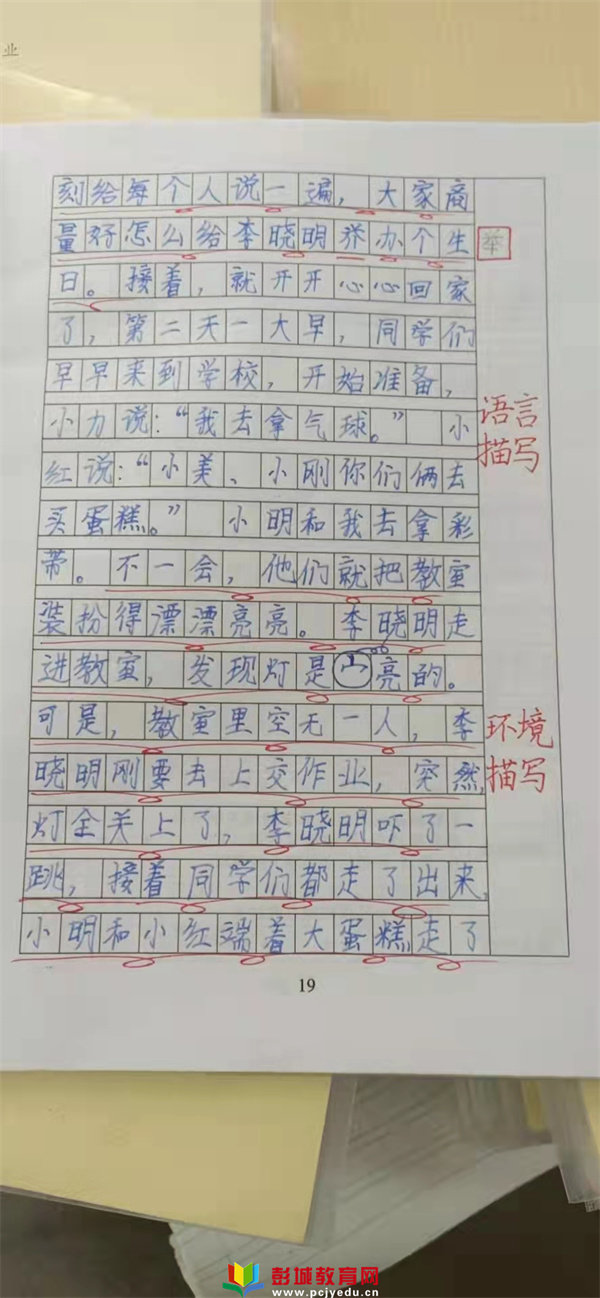 业
刻给每个人说一遍，大家商
量好怎么给李晓明举办个生
举
日。接着，就开开心心回家
了，第二天一大早，同学们
早早来到学校，开始准备，
小力说：“我去拿气球。”小
语言
红说：“小美、小刚你们俩去
描写
买蛋糕。”小明和我去拿彩
带。不一会，他们就把教室
装扮得漂漂亮亮。李晓明走
进教室，发现灯是亮的。
可是，教室里空无一人，李
环境
晓明刚要去上交作业，突然，
描写
灯全关上了，李晓明吓了一
跳，接着同学们都走了出来，
小明和小红端着大蛋糕走了
19
彭城教育网
www.pcjyedu.cn